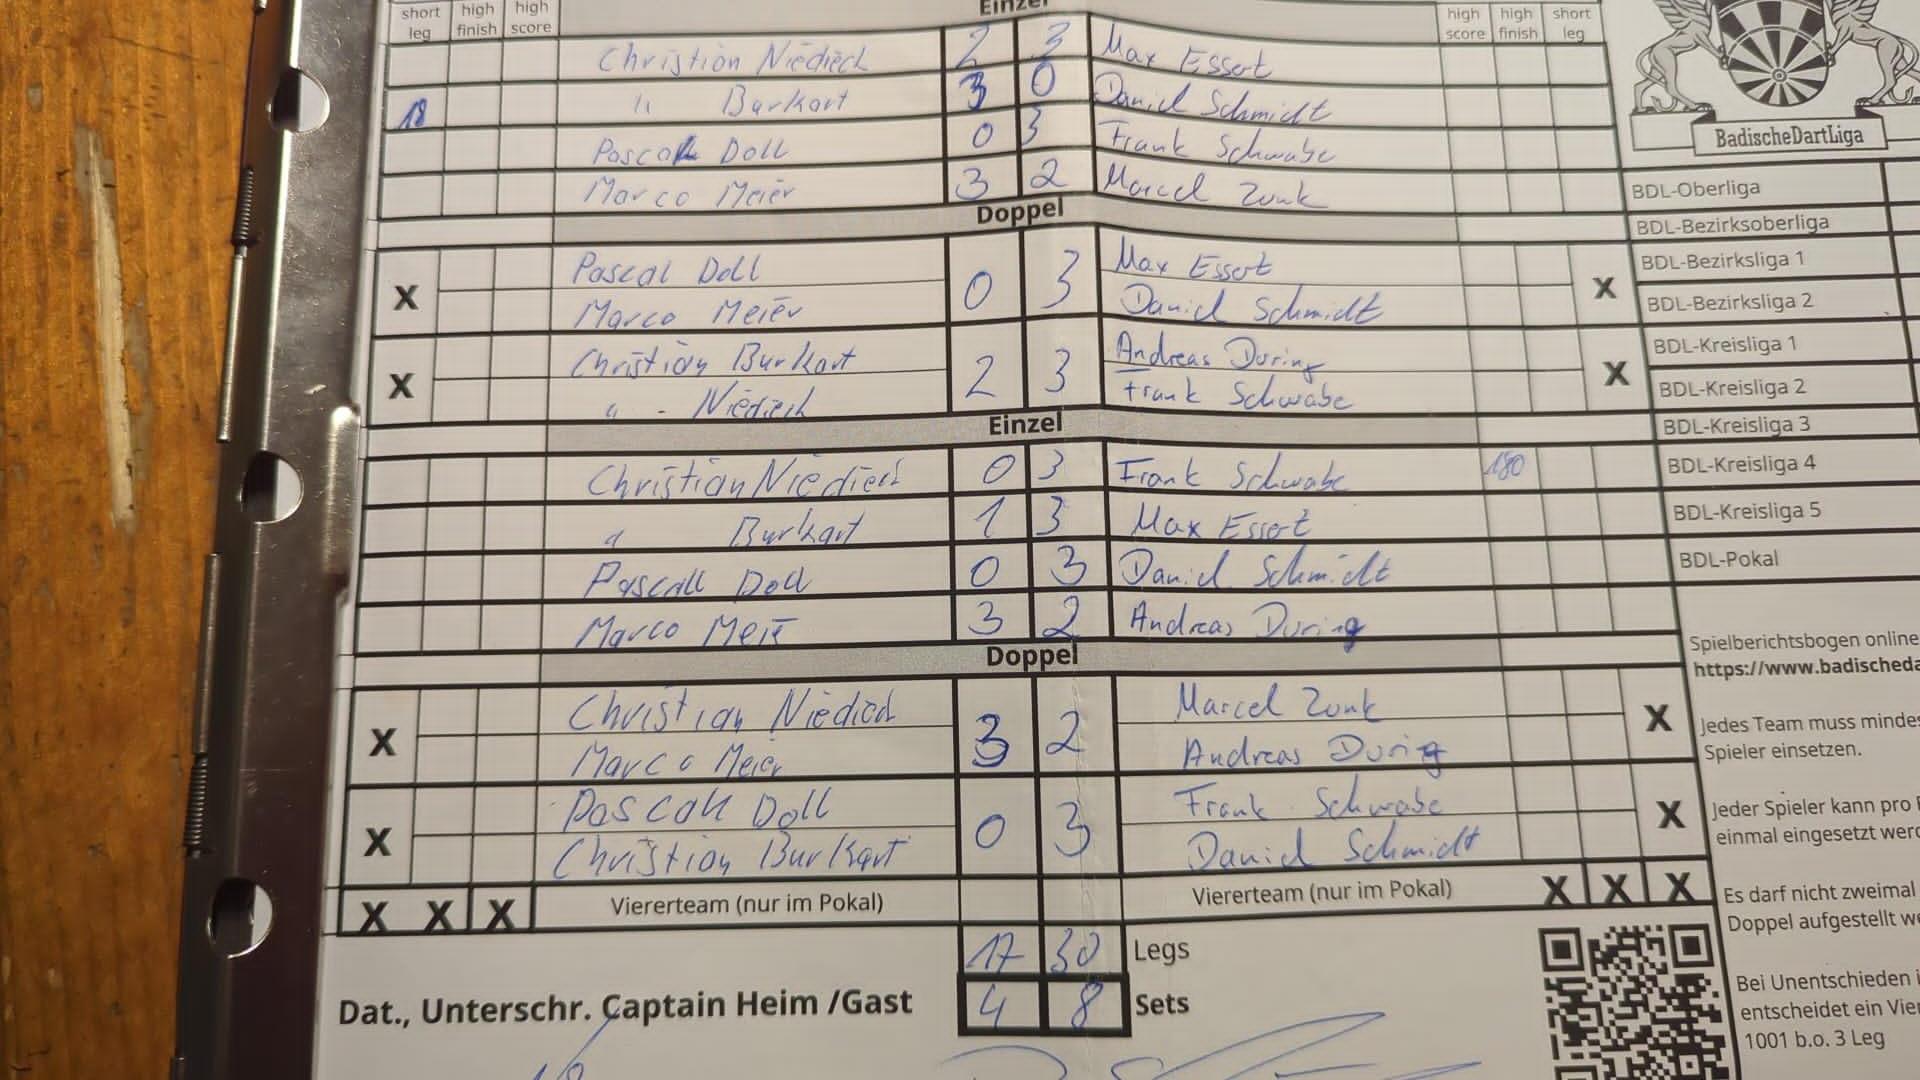 Einzel
short leg high finish high score high score high finish short leg
Christian Niedieck 2 3 Max Essert
18 " Burkart 3 0 Daniel Schmidt
Pascal Doll 0 3 Frank Schwabe
BadischeDartLiga
Marco Meier 3 2 Marcel Zunk
BDL-Oberliga
Doppel
BDL-Bezirksoberliga
Pascal Doll Max Essert
BDL-Bezirksliga 1
X 0 3 X
Marco Meier Daniel Schmidt
BDL-Bezirksliga 2
Christian Burkart Andreas During
BDL-Kreisliga 1
X 2 3 X
" - Niedieck Frank Schwabe
BDL-Kreisliga 2
Einzel
BDL-Kreisliga 3
Christian Niedieck 0 3 Frank Schwabe 180
BDL-Kreisliga 4
" Burkart 1 3 Max Essert
BDL-Kreisliga 5
Pascall Doll 0 3 Daniel Schmidt
BDL-Pokal
Marco Meir 3 2 Andreas During
Doppel
Spielberichtsbogen online
https://www.badischeda
Christian Niedieck Marcel Zunk
X 3 2 X
Marco Meier Andreas During
Jedes Team muss mindes
Spieler einsetzen.
Pascall Doll Frank Schwabe
X 0 3 X
Christian Burkart Daniel Schmidt
Jeder Spieler kann pro
einmal eingesetzt werd
X X X Viererteam (nur im Pokal) Viererteam (nur im Pokal) X X X
Es darf nicht zweimal
Doppel aufgestellt we
17 30 Legs
Dat., Unterschr. Captain Heim /Gast 4 8 Sets
Bei Unentschieden i
entscheidet ein Vier
1001 b.o. 3 Leg